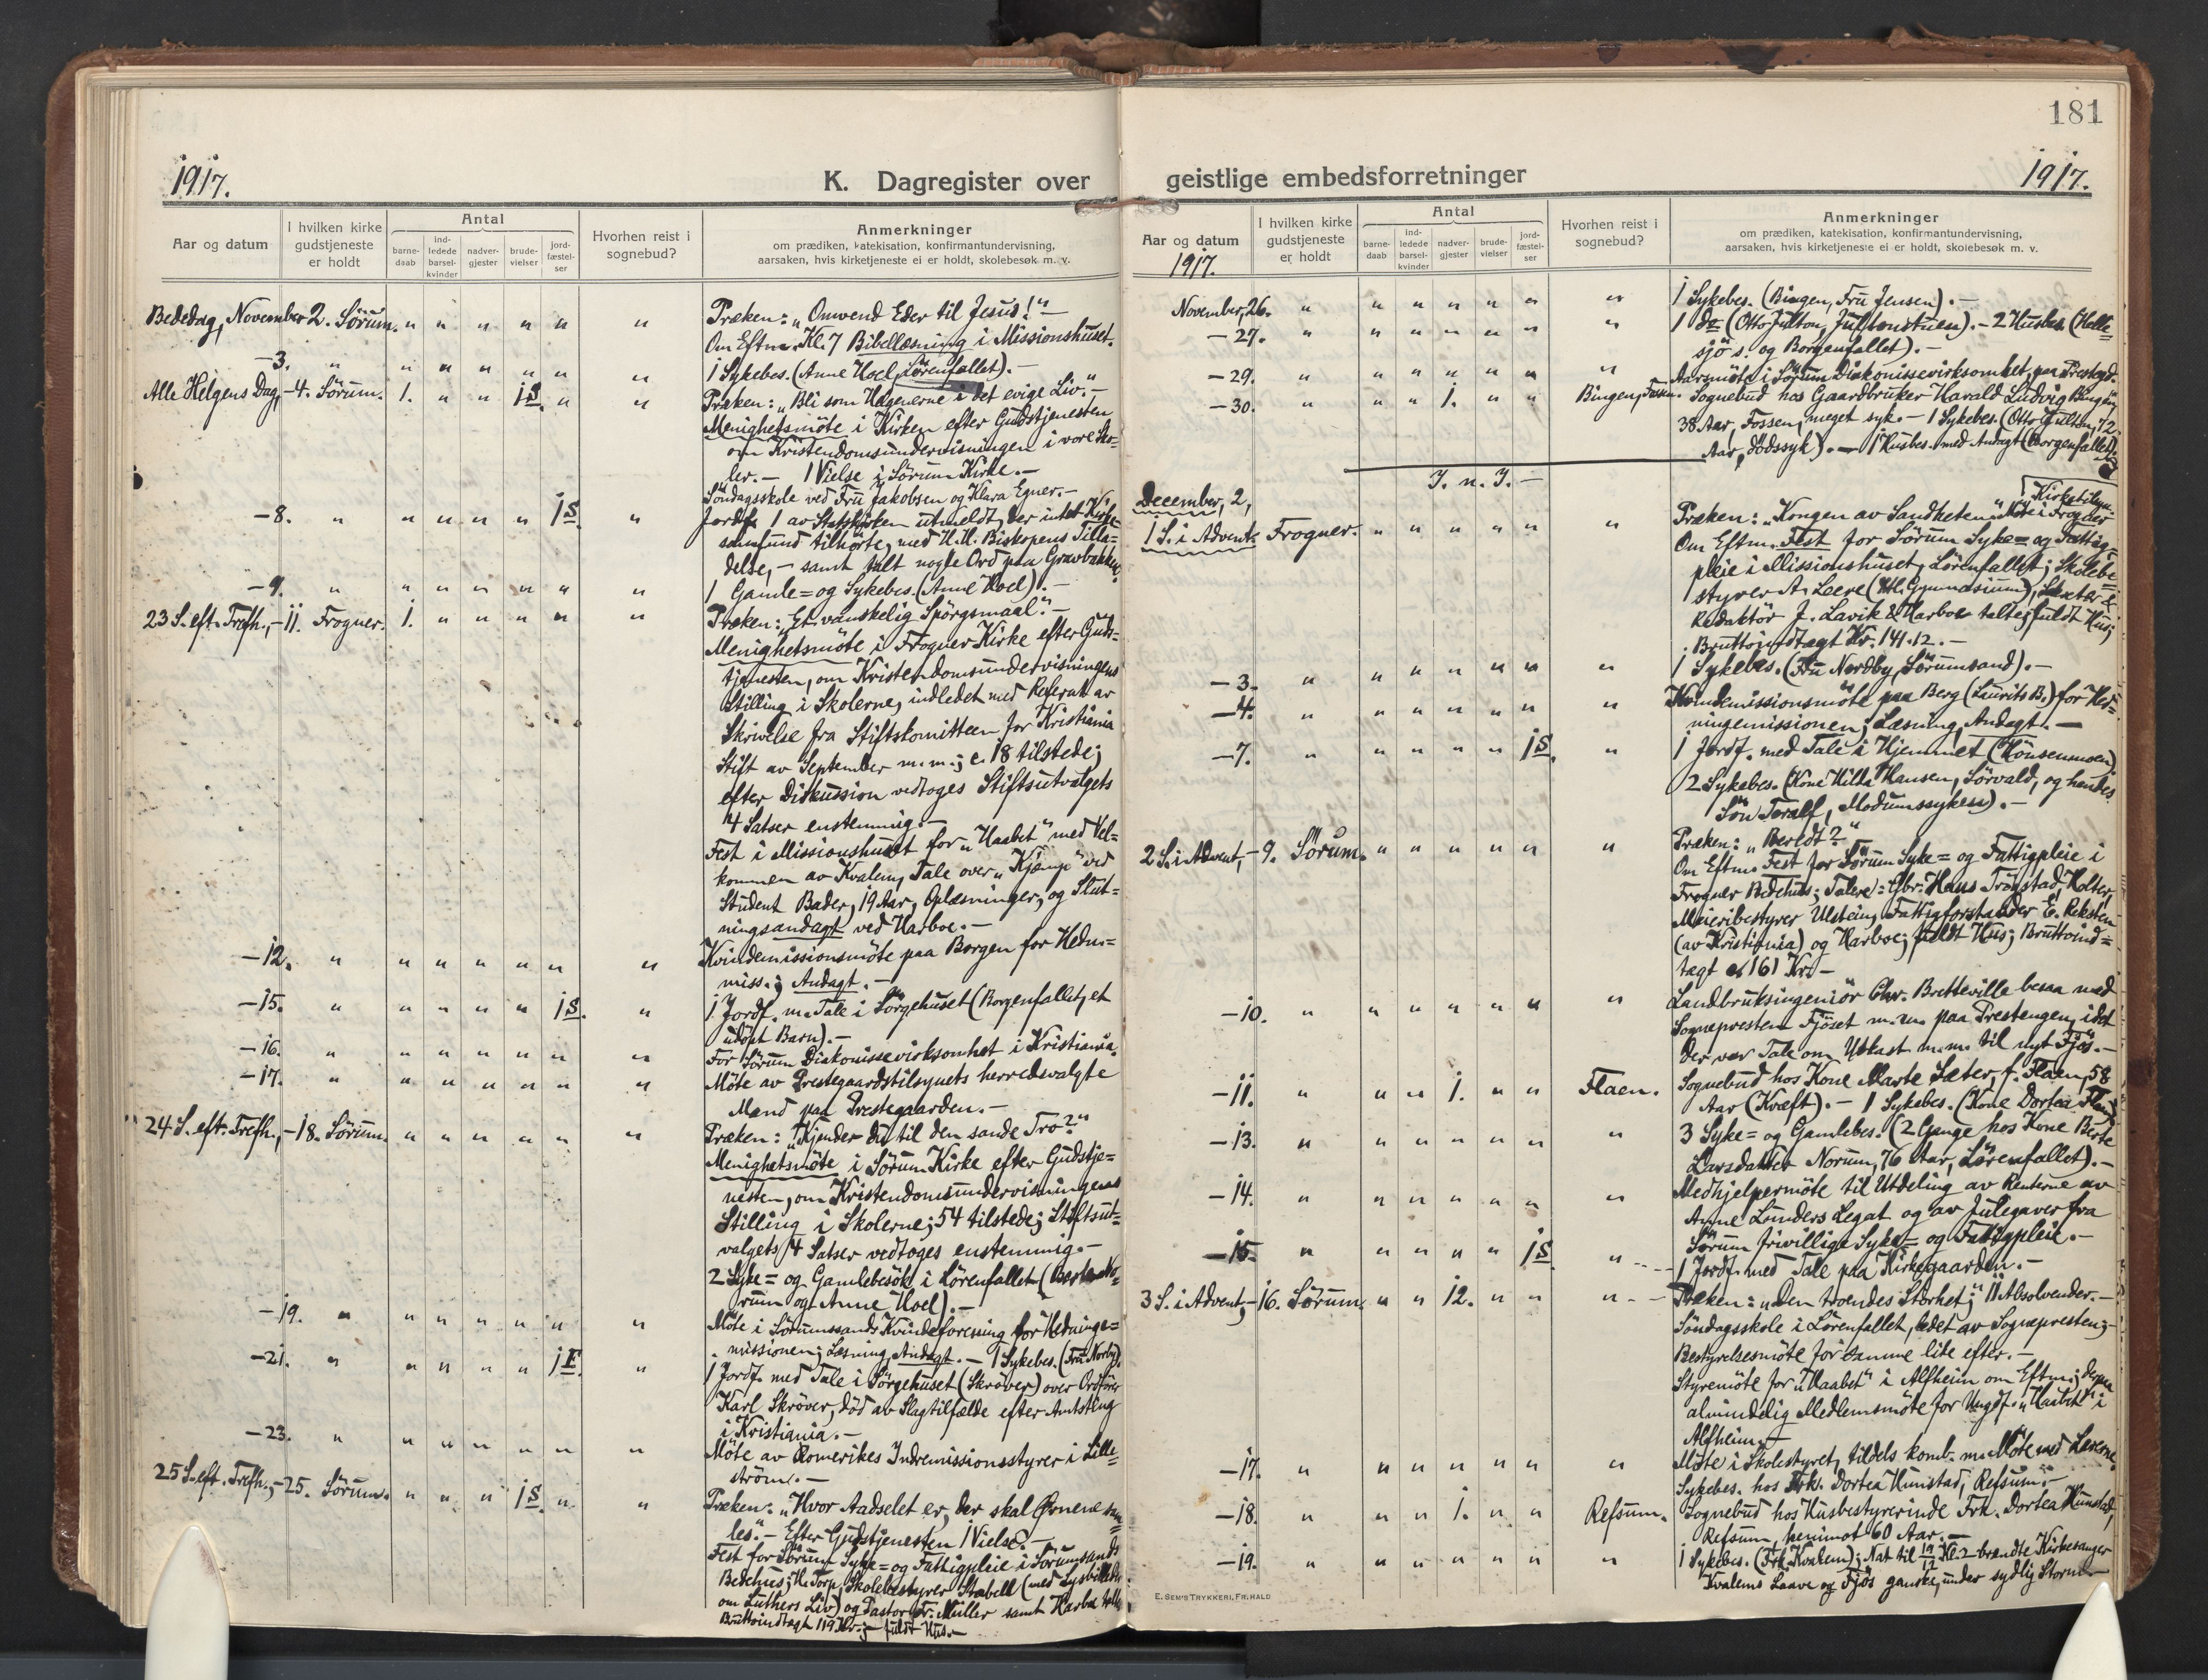 181
1917.
K. Dagregister over
Aar og datum
I hvilken kirke gudstjeneste er holdt
Antal
barne-daab
ind-ledede barsel-kvinder
nadver-gjester
brude-vielser
jord-fæstel-ser
Hvorhen reist i sognebud?
Anmerkninger
om prædiken, katekisation, konfirmantundervisning,
aarsaken, hvis kirketjeneste ei er holdt, skolebesøk m. v.
Bededag, November 2. Sörum. " " " " " " Præken: "Omvend Eder til Jesus!" -
Om Eftm. Kl. 7 Bibellæsning i Missionshuset.
- 3. " " " " " " " 1 Sykebes. (Anne Hoel, Lörenfallet). -
Alle Helgens Dag, - 4. Sörum. 1. " " 1 S. " " Præken: "Bli som Hedgenerne i det evige Liv." -
Menighetsmöte i Kirken efter Gudstjenesten
om Kristendomsundervisningen i vore Sko=
ler. - 1 Vielse i Sörum Kirke. -
Söndagsskole ved Fru Jakobsen og Klara Egner. -
- 8. " " " " " 1 S. " Jordf. 1 av Statskirken utmeldt, der intet Kirke=
samfund tilhörte, med H.H. Biskopens Tilla=
delse, - samt talt nogle Ord paa Gravbakken.
- 9. " " " " " " " 1 Gamle= og Sykebes. (Anne Hoel). -
23 S. eft. Trefh., - 11. Frogner. 1. " " " " " Præken: "Et vanskelig Spörgsmaal". -
Menighetsmöte i Frogner Kirke efter Guds=
tjenesten, om Kristendomsundervisningens
Stilling i Skolerne, indledet med Referat av
Skrivelse fra Stiftskomitteen for Kristiania
Stift av September m.m.; c. 18 tilstede;
efter Diskussion vedtoges Stiftsutvalgets
4 Satser enstemmig. -
Fest i Missionshuset for "Haabet" med Vel=
kommen av Kvalem, Tale over "Kjæmp" ved
Student Bader, 19 Aar, Oplæsninger, og Slut=
ningsandagt ved Harboe. -
- 12. " " " " " " " Kvindemissionsmöte paa Borgen for Hedn=
miss.; Andagt. -
- 15. " " " " " 1 S. " 1 Jordf. m. Tale i Sörgehuset (Borgenfallet, et
udöpt Barn). -
- 16. " " " " " " " For Sörum Diakonissevirksomhet i Kristiania.
- 17. " " " " " " " Möte av Prestegaardstilsynets herredsvalgte
Mænd paa Prestegaarden. -
24 S. eft. Trefh., - 18. Sörum. " " " " " " Præken: "Kjender du til den sande Tro?"
Menighetsmöte i Sörum Kirke efter Gudstje=
nesten, om Kristendomsundervisningens
Stilling i Skolerne; 54 tilstede; Stiftsut=
valgets 4 Satser vedtoges enstemmig. -
2 Syke= og Gamlebesök i Lörenfallet (Berte No=
rum og Anne Hoel). -
- 19. " " " " " " " Möte i Sörumssands Kvindeforening for Hedninge=
missionen; Læsning, Andagt. - 1 Sykebes. (Fru Norby).
- 21. " " " " " 1 F. " 1 Jordf. med Tale i Sörgehuset (Skröver) over Ordförer
Karl Skröver, död av Slagtilfælde efter Amtsting
i Kristiania. -
- 23. " " " " " " " Möte av Romerikes Indremissionsstyrer i Lille=
ström. -
25 S. eft. Trefh., - 25. Sörum. " " " 1 S. " " Præken: "Hvor Aadselet er, der skal Ørnene sam=
les." - Efter Gudstjenesten 1 Vielse. -
Fest for Sörum Syke= og Fattigpleie i Sörumsands
Bedehus; H. Torp, Skolebestyrer Stabell (med Lysbilleder
om Luthers Liv) og Pastor Fr. Müller samt Harboe talte;
Bruttoindtægt 119 Kr.; - fuldt Hus. -
geistlige embedsforretninger
1917.
Aar og datum
1917.
I hvilken kirke gudstjeneste er holdt
Antal
barne-daab
ind-ledede barsel-kvinder
nadver-gjester
brude-vielser
jord-fæstel-ser
Hvorhen reist i sognebud?
Anmerkninger
om prædiken, katekisation, konfirmantundervisning,
aarsaken, hvis kirketjeneste ei er holdt, skolebesøk m. v.
November, 26. " " " " " " " 1 Sykebes. (Bingen, Fru Jensen). -
- 27. " " " " " " " 1 do (Otto Julton, Jultonstuen). - 2 Husbes. (Helle
sjö s. og Borgenfallet). -
- 29. " " " " " " " Aarsmöte i Sörum Diakonissevirksomhet paa Prestegd.
- 30. " " " 1. " " Bingen, Fossen. Sognebud hos Gaardbruker Harald Ludvig Bingen,
38 Aar, Fossen, meget syk. - 1 Sykebes. (Otto Julton, 72
Aar, dödssyk). - 1 Husbes. med Andagt (Borgenfallet).
J. n. J. -
December, 2,
1 S. i Advent. Frogner. " " " " " " Præken: "Kongen av Sandheten". Kirketilsyn-
Möte i Frogner
Om Eftm. Fest for Sörum Syke= og Fattig=
pleie i Missionshuset, Lörenfallet; Skolebe=
styrer A. Leere (Gymnasium), &
Redaktör J. Lavik & Harboe talte; fuldt Hus;
Bruttoindtægt Kr. 141.12. -
- 3. " " " " " " " 1 Sykebes. (Fru Nordby, Sörumsand). -
- 4. " " " " " " " Kvindemissionsmöte paa Berg (Laurits B.) for Hed=
ningemissionen; Læsning, Andagt. -
- 7. " " " " " 1 S. " 1 Jordf. med Tale i Hjemmet (Hönsenmoen)
2 Sykebes. (Kone Hilda Hansen, Sörvald, og hendes
Sön Toralf, Modumssyken). -
2 S. i Advent, - 9. Sörum. " " " " " " Præken: "Beredt?" -
Om Eftm. Fest for Sörum Syke= og Fattigpleie i
Frogner Bedehus; Talere: Gbr. Hans Trögstad, Holter,
Meieribestyrer Ulstein, Fattigforstander E. Reksten
(av Kristiania) og Harboe; fuldt Hus; Bruttoind=
tægt 161 Kr. -
- 10. " " " " " " " Landbruksingeniör Chr. Bretteville besaa med
Sognepresten Fjöset m.m. paa Prestengen, idet
der var Tale om Utkast m.m. til nyt Fjös. -
- 11. " " " 1. " " Flaen. Sognebud hos Kone Marte Sæter, f. Flaen, 58
Aar (Kræft). - 1 Sykebes. (Kone Dortea Flaen)
- 13. " " " " " " " 3 Syke= og Gamlebes. (2 Gange hos Kone Berte
Larsdatter Norum, 76 Aar, Lörenfallet). -
- 14. " " " " " " " Medhjelpermöte til Utdeling av Renterne av
Anne Lunders Legat og av Julegaver fra
Sörum frivillige Syke= og Fattigpleie. -
- 15. " " " " " 1 S. " 1 Jordf. med Tale paa Kirkegaarden. -
3 S. i Advent, - 16. Sörum. " " 12. " " " Præken: "Den troendes Storhet;" 11 Absolvender. -
Söndagsskole i Lörenfallet, ledet av Sognepresten; -
Bestyrelsesmöte for samme lite efter. -
Styremöte for "Haabet" i Alfheim om Eftm.; derpaa
almindelig Medlemsmöte for Ungdf. "Haabet" i
Alfheim. -
- 17. " " " " " " " Möte i Skolestyret, tildels komb. m. Möte med Lærerne.
Sykebes. hos Frk. Dortea Hunstad, Refsum. -
- 18. " " " 1. " " Refsum. Sognebud hos Husbestyrerinde Frk. Dortea Hunstad,
Refsum, henimot 60 Aar. -
- 19. " " " " " " " 1 Sykebes. (Frk. Kvalem); Nat til 19/12 Kl. 2 brændte Kirkesanger
Kvalems Laave og Fjös ganske, under sydlig Storm. -
E. SEM'S TRYKKERI, FR.HALD